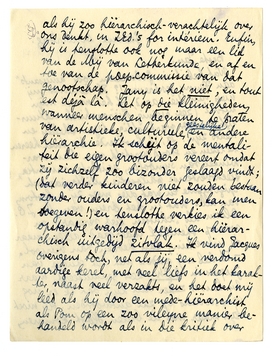 als hij zoo hiërarchisch-verachtelijk over
ons denkt, in zes's for intérieur. Enfin,
hij is tenslotte ook nog maar een lid
van de Mij van Letterkunde, en af en
toe van de poep-commissie van dat
genootschap. Zany is het niet, en tout
est déjà là. Let op bij kleinigheden,
wanneer menschen beginnen te praten
van artistieke, culturele, en andere
hiërarchie. Ik scheijt op de mentali-
teit die eigen grootouders vereert omdat
zij zichzelf zoo bizonder geslaagd vindt;
(dat verder kinderen niet zouden bestaan
zonder ouders en grootouders, kan men
toegeven!) en tenslotte verkies ik een
opstandig warhoofd tegen een hiërar-
chisch uitgedijd zitvlak. Ik vind Jacques
overigens toch, net als jij, een verdomd
aardige kerel, met veel liefs in het karak-
ter, naast veel verzakts, en het doet mij
leed als hij door een mede-hiërarchist
als Pom op een zoo vileyne manier be-
handeld wordt als in die kritiek over